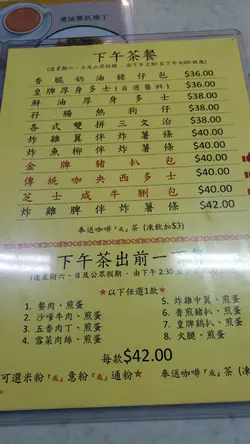 下午茶餐
(逢星期六、日及公眾假期,由下午2:30至下午6:00供應)
香脆奶油豬仔包 $36.00
皇牌厚身多士(自選醬料) $38.00
鮮油厚多士 $38.00
孖腸熱狗 $38.00
各式雙拼三文治 $40.00
炸雞翼伴炸薯條 $40.00
炸魚柳伴炸薯條 $40.00
金牌豬扒包 $40.00
傳統咖央西多士 $40.00
芝士咸牛脷包 $40.00
炸雞脾伴炸薯條 $42.00
奉送咖啡『或』茶(凍飲加$3)
下午茶出前一丁
(逢星期六、日及公眾假期,由下午2:30
☆以下任選1款☆
1. 餐肉、煎蛋
2. 沙嗲牛肉、煎蛋
3. 五香肉丁、煎蛋
4. 雪菜肉絲、煎蛋
5. 炸雞中翼、煎蛋
6. 香煎豬扒、煎蛋
7. 皇牌鵝扒、煎蛋
8. 火腿、煎蛋
每款$42.00
可選米粉『或』意粉『或』通粉
奉送咖啡『或』茶(凍飲